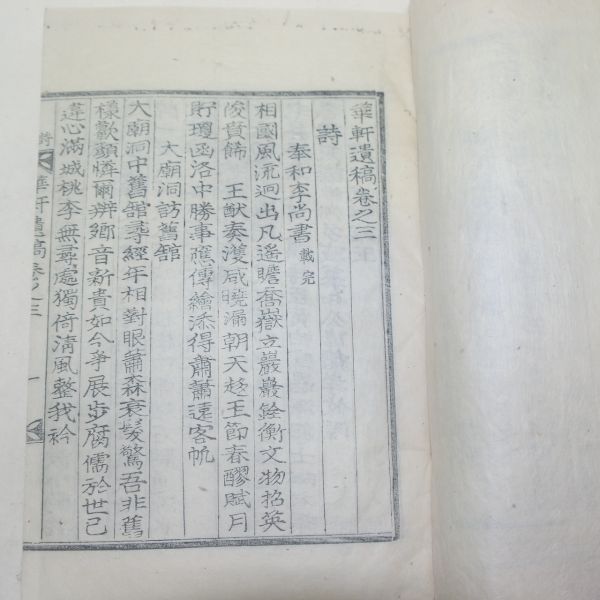 華軒遺稿卷之三
詩
奉和李尚書 載完
相國風流迥出凡遥瞻喬嶽立巖巖銓衡文物招英
俊貴飾 王猷奏濩咸曉漏朝天趍玉節春醪賦月
貯瓊函洛中勝事應傳繪添得蕭蕭遠客帆
大廟洞訪舊舘
大廟洞中舊舘尋經年相對眼蕭森衰髮驚吾非舊
樣歡顔憐爾辨鄉音新貴如今爭展步腐儒於世已
違心滿城桃李無尋處獨倚清風整我衿
詩 華軒遺稿卷之三 一